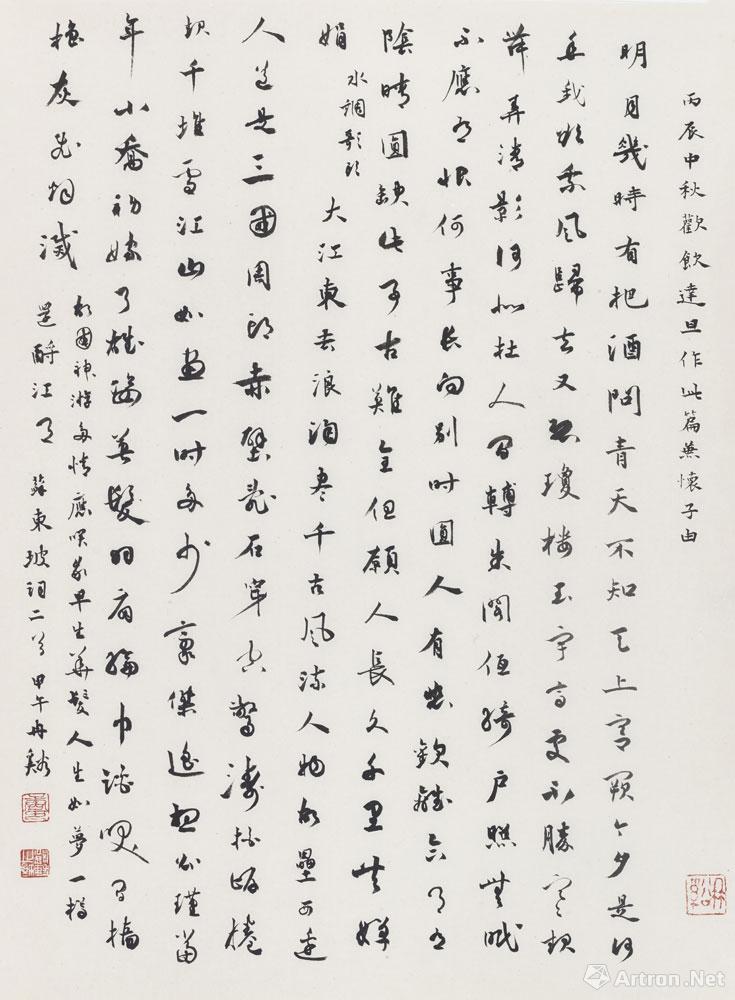 丙辰中秋歡飲達旦作此篇兼懷子由
明月幾時有把酒問青天不知天上宮闕今夕是何
年我欲乘風歸去又恐瓊樓玉宇高處不勝寒起
舞弄清影何似在人間轉朱閣低綺戶照無眠
不應有恨何事長向別時圓人有悲歡離合月有
陰晴圓缺此事古難全但願人長久千里共嬋
娟
水調歌頭
大江東去浪淘盡千古風流人物故壘西邊
人道是三國周郎赤壁亂石穿空驚濤拍岸捲
起千堆雪江山如畫一時多少豪傑遙想公瑾當
年小喬初嫁了雄姿英發羽扇綸巾談笑間檣
櫓灰飛煙滅
故國神游多情應笑我早生華髮人生如夢一樽
還酹江月
蘇東坡詞二首 甲午
Artron.Net